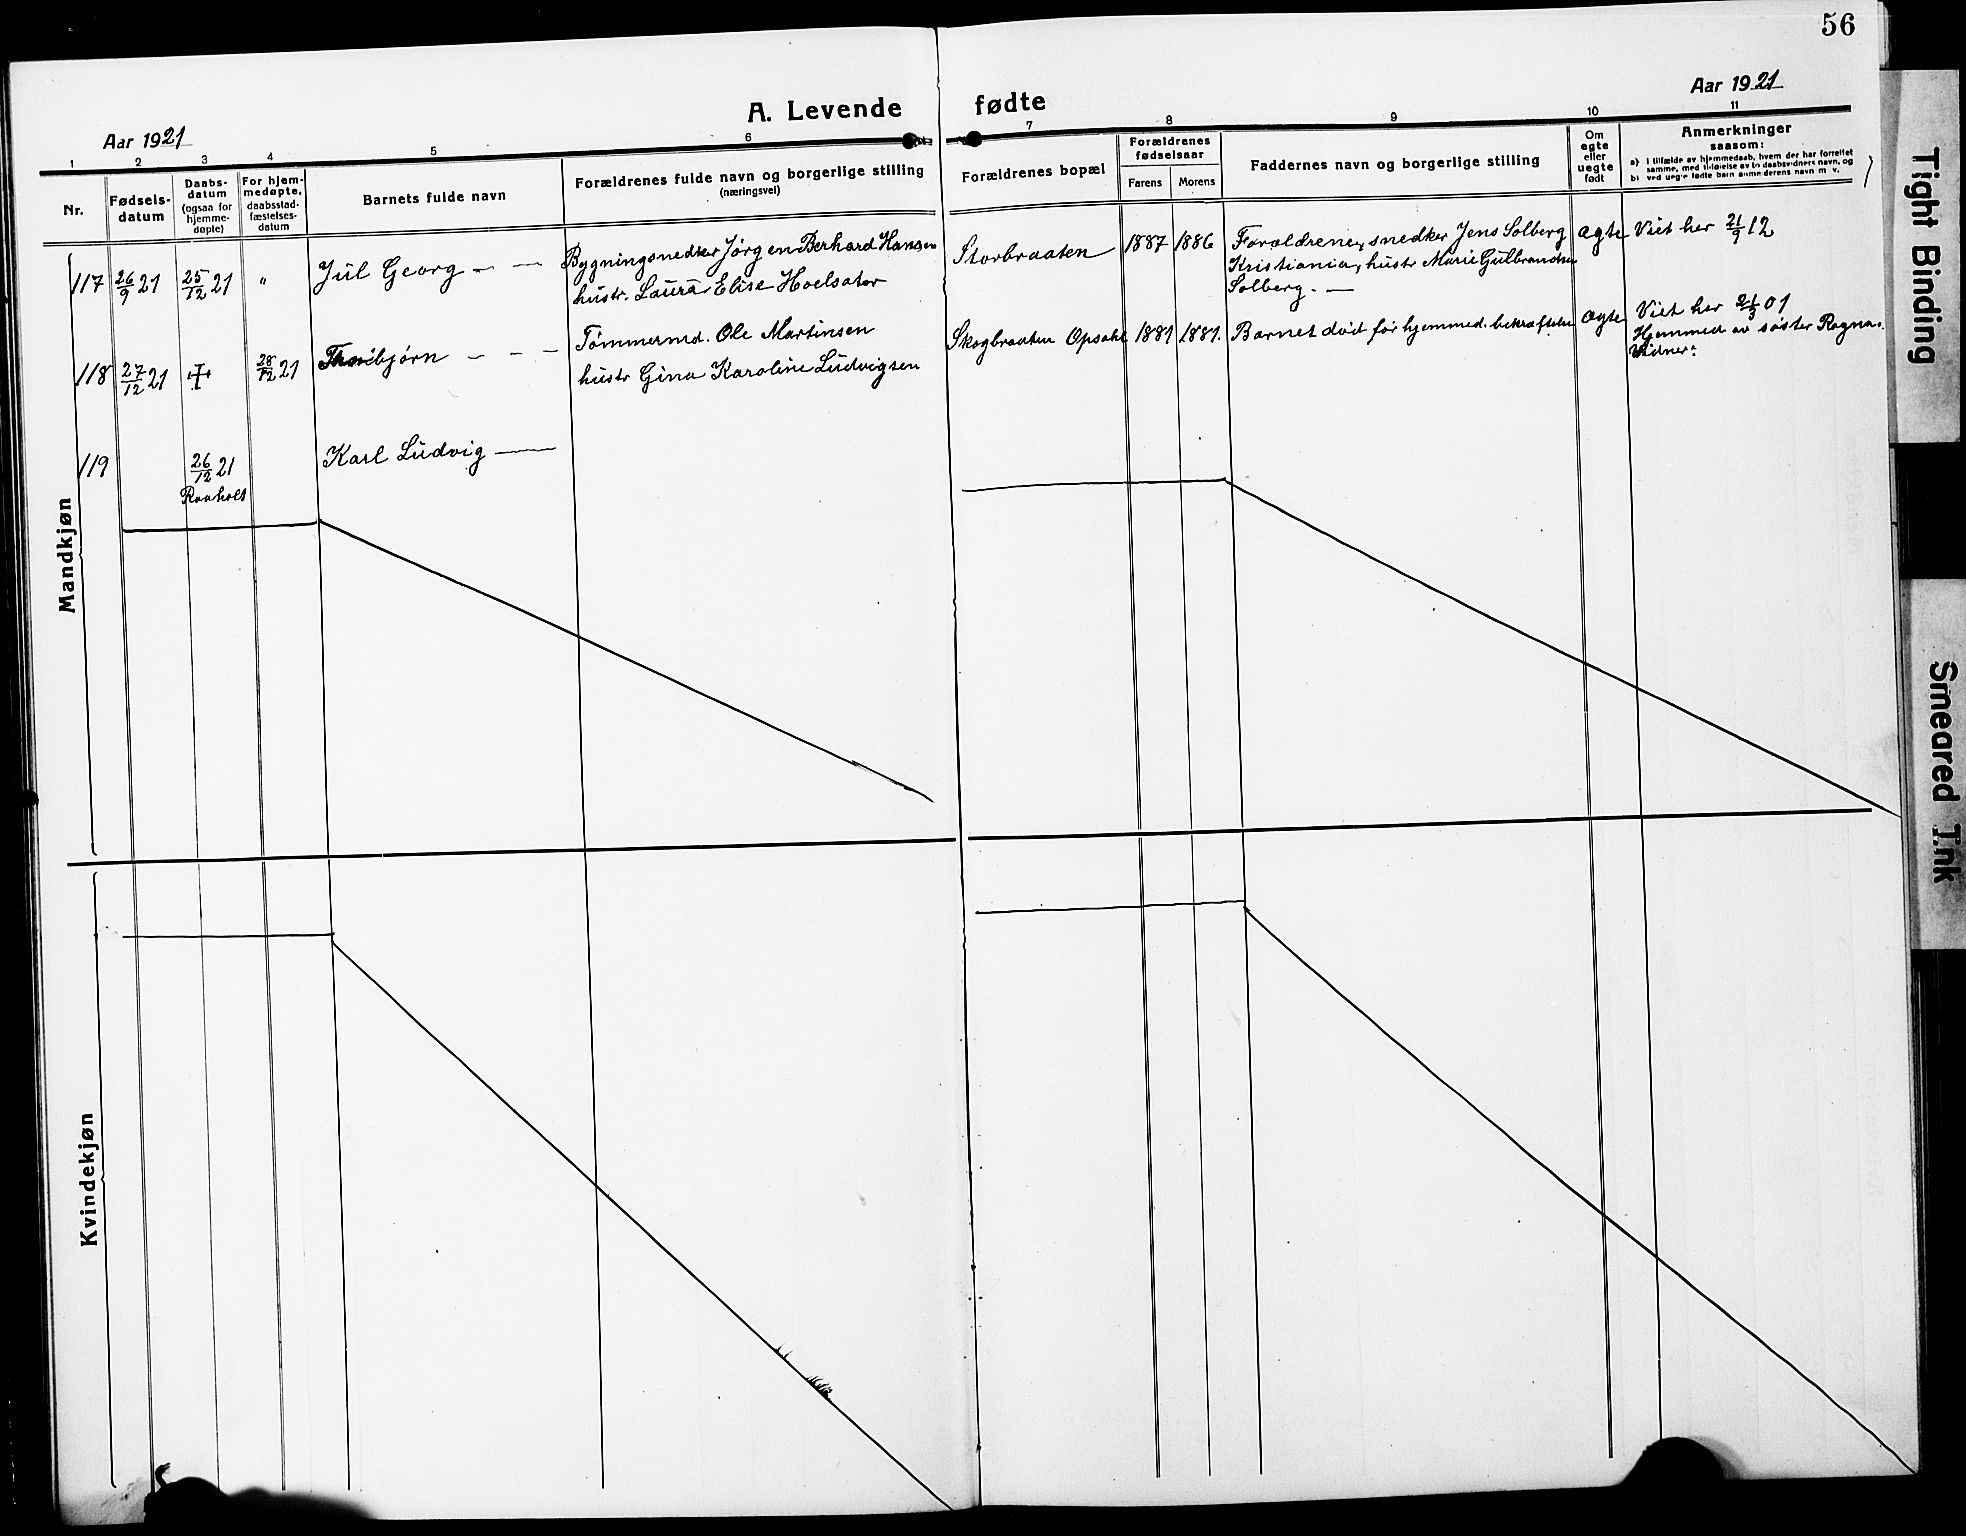 56
A. Levende fødte
Aar 1921
Aar 1921
1 2 3 4 5 6 7 8 9 10 11
Nr.
Fødsels-
datum
Daabs-
datum
(ogsaa for
hjemme-
døpte)
For hjem-
medøpte,
daabsstad-
fæstelses-
datum
Barnets fulde navn
Forældrenes fulde navn og borgerlige stilling
(næringsvei)
Forældrenes bopæl
Forældrenes
fødselsaar
Farens Morens
Faddernes navn og borgerlige stilling
Om
egte
eller
uegte
født
Anmerkninger
saasom:
a) i tilfælde av hjemmedaab, hvem der har forrettet
samme, med tilføielse av to daabsvidners navn, og
b) ved uegte fødte barn anmelderens navn m. v.
Mandkjøn
117 26/9 21 25/12 21 " Jul Georg — —
Bygningsnedker Jørgen Berhard Hansen
hustr. Laura Elise Hoelsæter
Storbraaten 1887 1886
Forældrene, snedker Jens Solberg
Kristiania, hustr Marie Gulbrandsen
Solberg. —
ægte Viet her 21/9 12
118 27/12 21 28/12 21
Tømmermd. Ole Martinsen
hustr Gina Karoline Ludvigsen
Skogbraaten Opsahl 1881 1881.
Barnet død før hjemmed. bekræftelse
ægte Viet her 21/3 01
Hjemmed av søster Ragna.
Vidner:
119 26/12 21 Karl Ludvig —
Raaholt
Kvindekjøn
Tight Binding
Smeared Ink